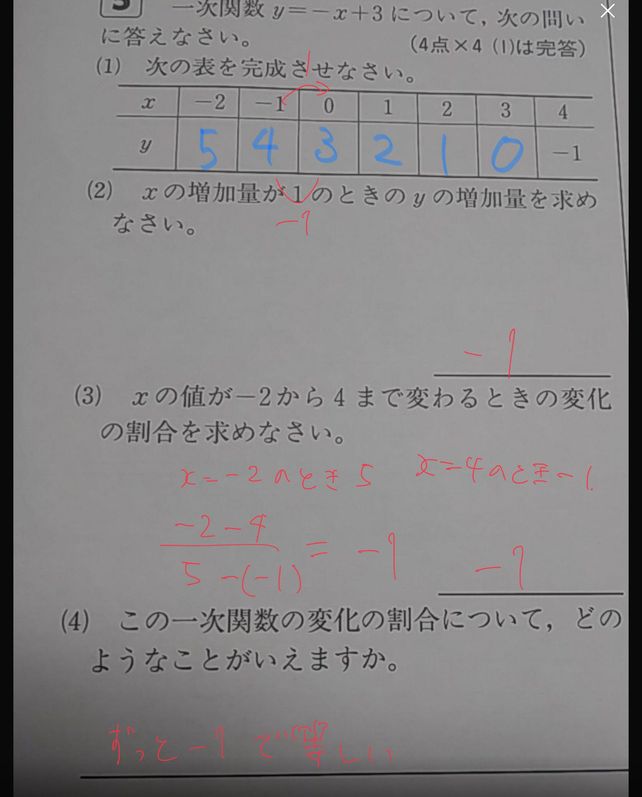 3 一次関数 y=-x+3 について, 次の問い
に答えなさい。 (4点×4 (1)は完答)
(1) 次の表を完成させなさい。
1
x -2 -1 0 1 2 3 4
y 5 4 3 2 1 0 -1
(2) xの増加量が1のときのyの増加量を求め
-1
なさい。
-1
(3) xの値が-2から4まで変わるときの変化
の割合を求めなさい。
x=-2のとき5 x=4のとき-1
-2-4
5-(-1)
= -1
-1
(4) この一次関数の変化の割合について, どの
ようなことがいえますか。
ずっと-1で等しい